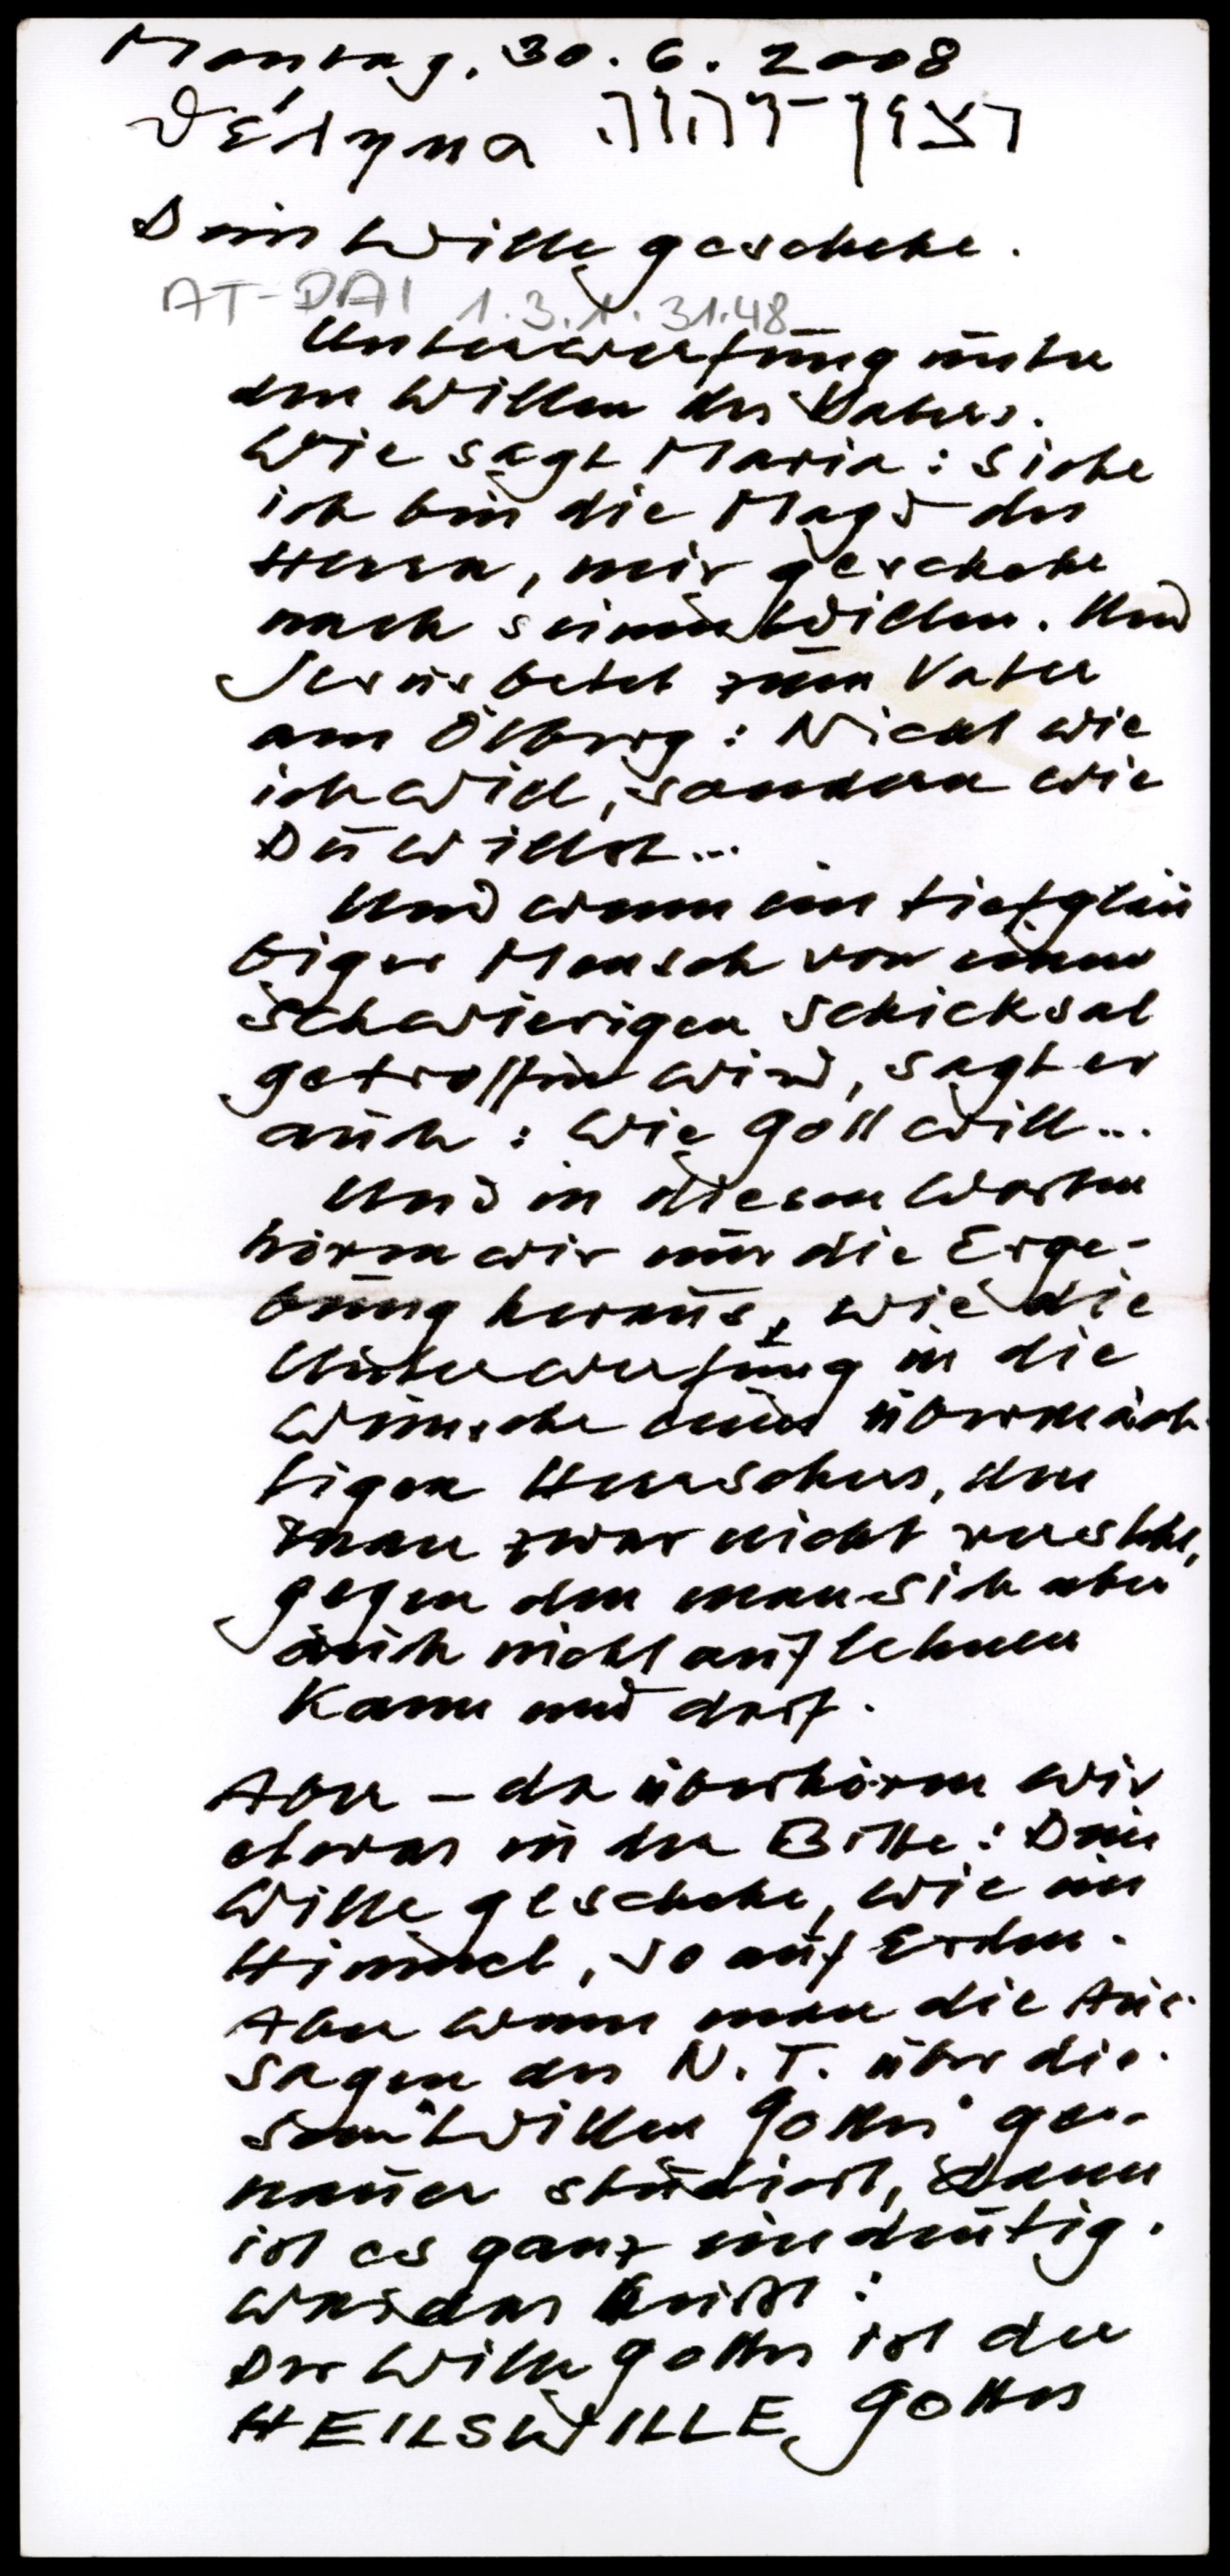 Montag, 30.6.2008
θέλημα רצון יהוה
Dein Wille geschehe.
AT-DAI 1.3.1.31.48
Unterwerfung unter
den Willen des Vaters.
Wie sagt Maria: Siehe
ich bin die Magd des
Herrn, mir geschehe
nach seinem Willen. Und
Jesus betet zum Vater
am Ölberg: Nicht wie
ich will, sondern wie
Du willst...
Und wenn ein tiefgläu
biger Mensch von einem
schwierigen Schicksal
getroffen wird, sagt er
auch: Wie Gott will...
Und in diesen Worten
hören wir nur die Erge-
bung heraus, wie die
Unterwerfung in die
Wünsche eines übermäch-
tigen Herrschers, den
man zwar nicht versteht,
gegen den man sich aber
auch nicht auflehnen
kann und darf.
Aber – da überhören wir
etwas in der Bitte: Dein
Wille geschehe, wie im
Himmel, so auf Erden.
Aber wenn man die Aus-
sagen des N.T. über die-
sen "Willen Gottes" ge-
nauer studiert, dann
ist es ganz eindeutig.
was das heißt:
Der Wille Gottes ist der
HEILSWILLE Gottes